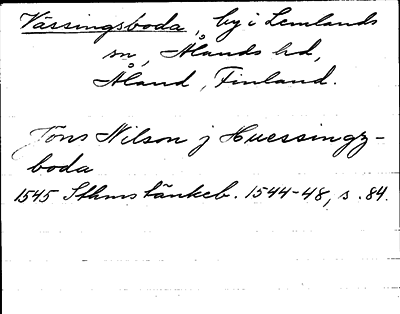 Vässingsboda, by i Lemlands
sn, Ålands hd,
Åland, Finland.
Jons Nilson j Huessingz-
boda
1545 Sthms tänkeb. 1544-48, s. 84.